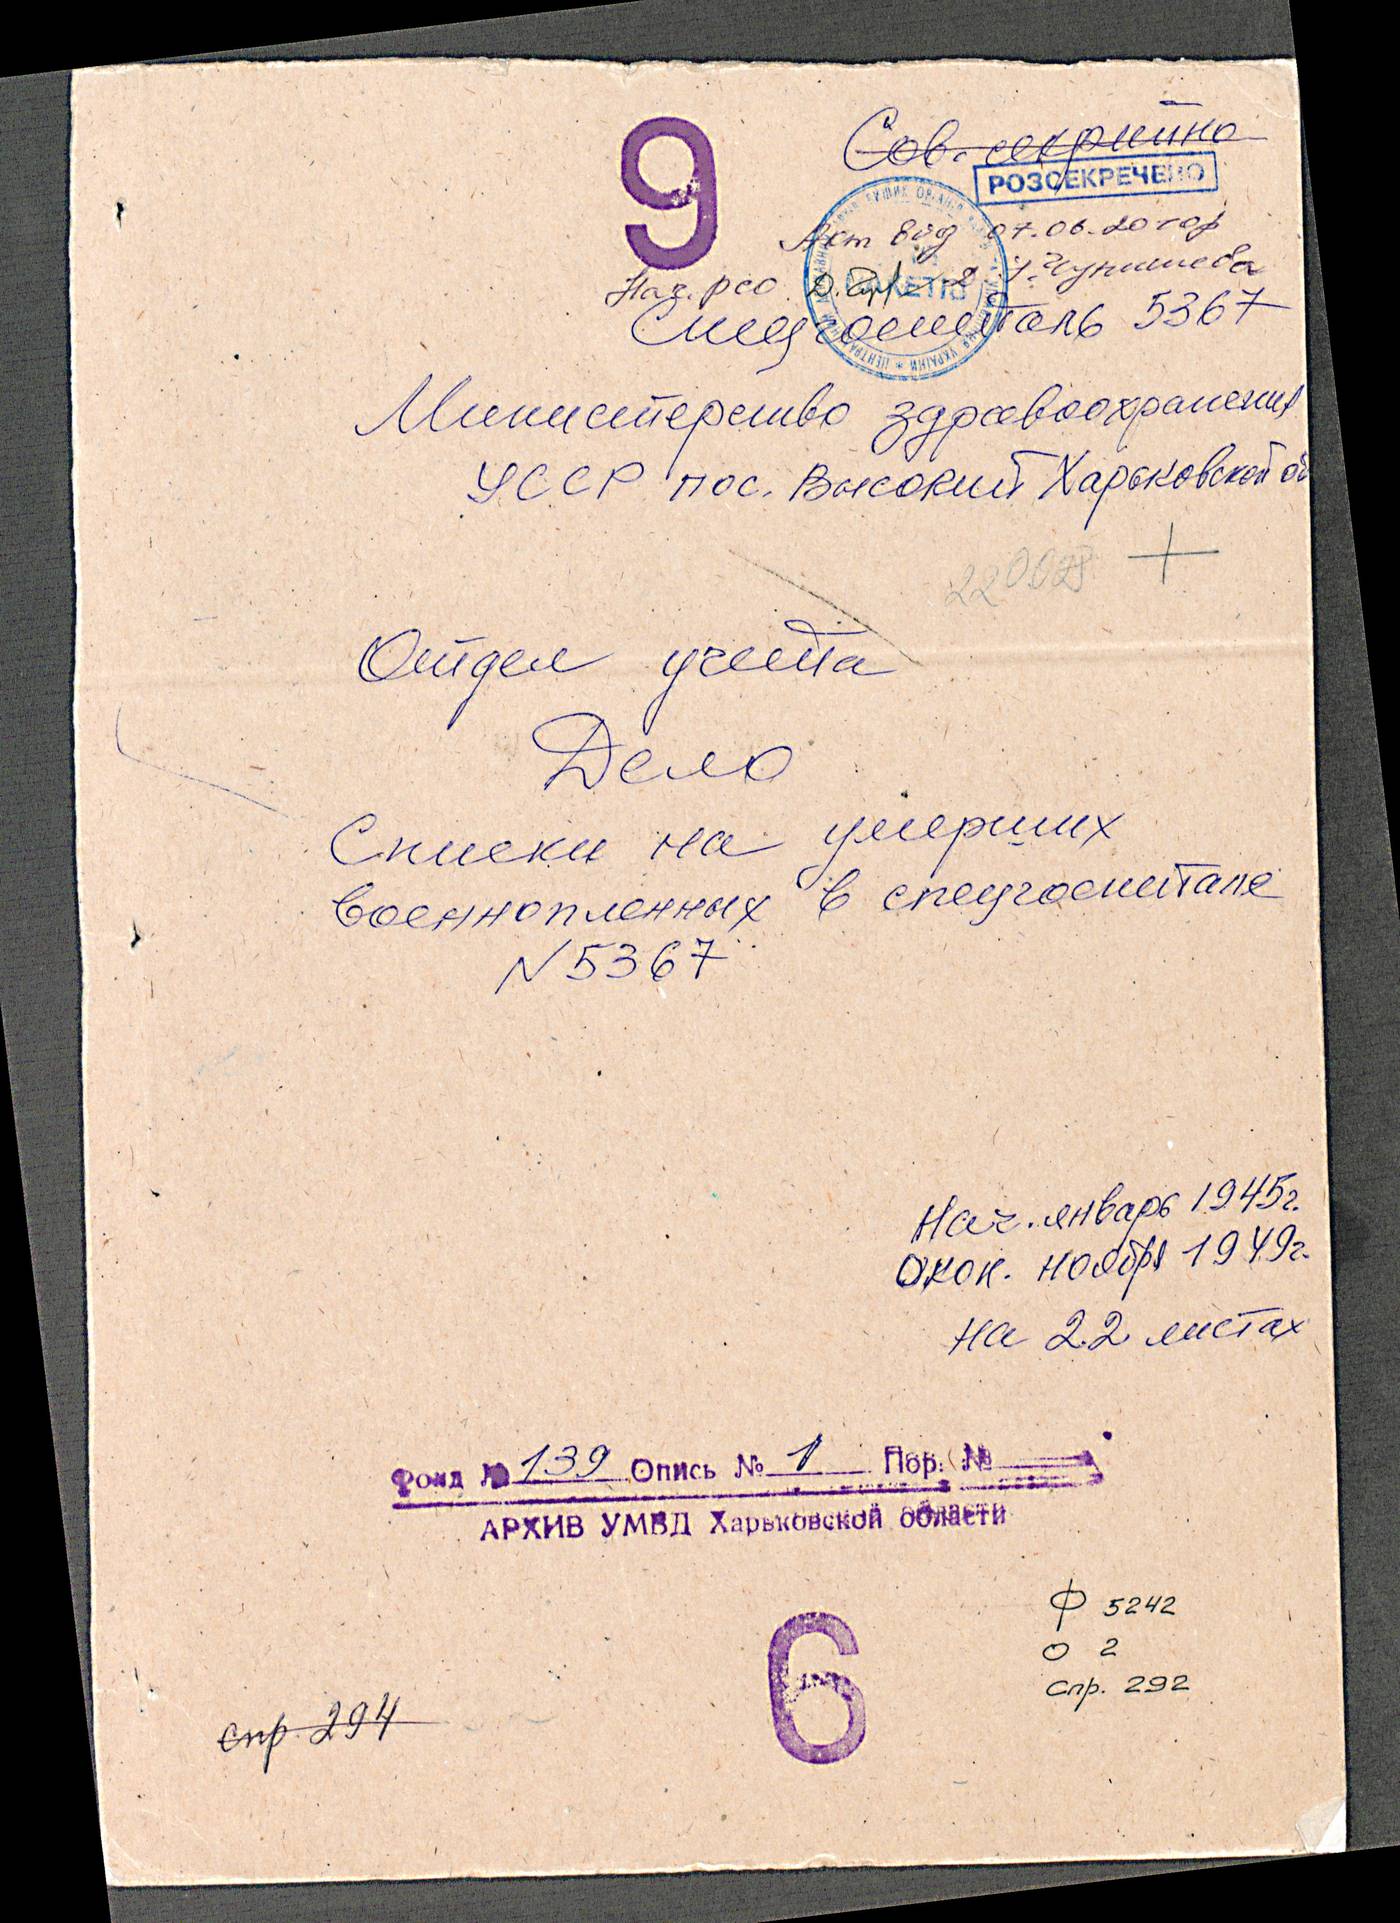 9
Сов. секретно
РОЗСЕКРЕЧЕНО
Акт від 07.06.20
Нач. РСО
Спецгоспиталь 5367
Министерство здравоохранения
УССР пос. Высокий Харьковской об
Отдел учета
Дело
Списки на умерших
военнопленных в спецгоспитале
N 5367
Нач. январь 1945г.
Окон. ноябрь 1949г.
на 22 листах
Фонд № 139 Опись № 1 Пор. №
АРХИВ УМВД Харьковской области
Ф 5242
О 2
спр. 292
6
спр 294